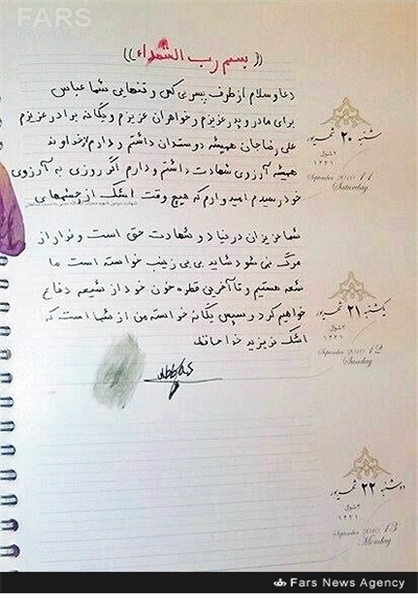 FARS
NEWS AGENCY
((بسم رب الشهداء))
دعا و سلام از طرف پسر بی کس و تنهایی شما عباس
برای مادر و پدر عزیزم و خواهران عزیزم و یگانه برادر عزیزم
علی رضا جان همیشه دوستدان داشتم و دارم از خداوند
همیشه آرزوی شهادت داشتم و دارم اگر روزی به آرزوی
خود رسیدم امیدوارم که هیچ وقت اشک از چشمهایی
شما عزیزان در نیاد و شهادت حق است و فرار از
مرگ نمی شود شاید بی بی زینب خواسته است ما
شعه هستیم و تا آخرین قطره خون خود از شیعه دفاع
خواهیم کرد و سپس یگانه خواسته من از شما است که
اشک نریزید خدا حافظ
شنبه ۲۰ شهریور
۲ شوال
۱۴۳۱
September 2010 / 11
Saturday
یکشنبه ۲۱ شهریور
۳ شوال
۱۴۳۱
September 2010 / 12
Sunday
دوشنبه ۲۲ شهریور
۴ شوال
۱۴۳۱
September 2010 / 13
Monday
Fars News Agency